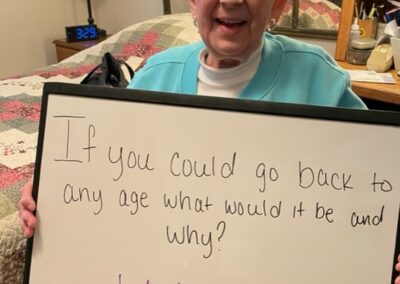 3:29
If you could go back to
any age what would it be and
why?